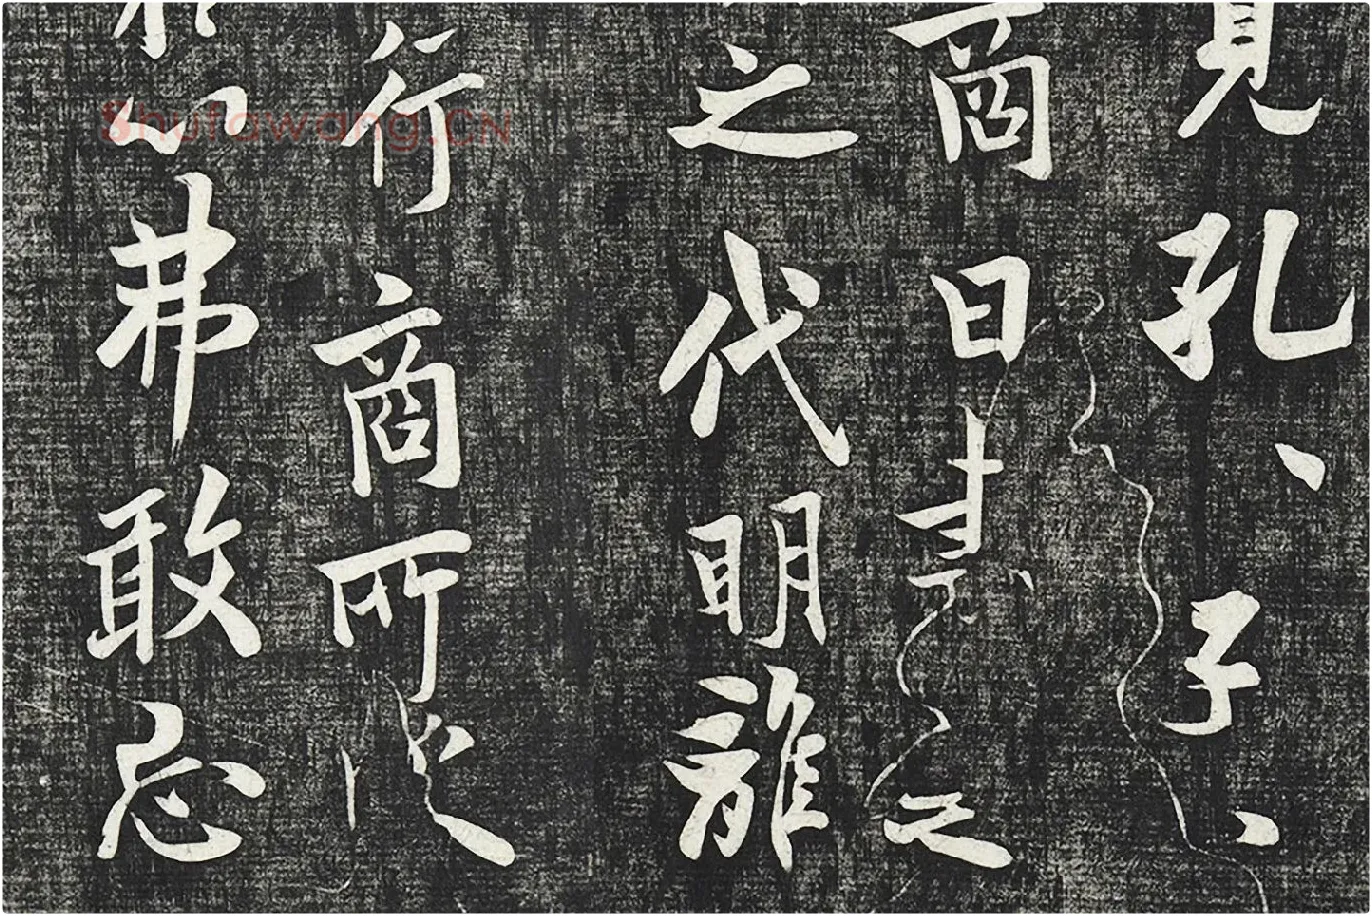 見孔、子、
商曰書之
之代明離
行商所受
於心弗敢忘
Shufawang.CN